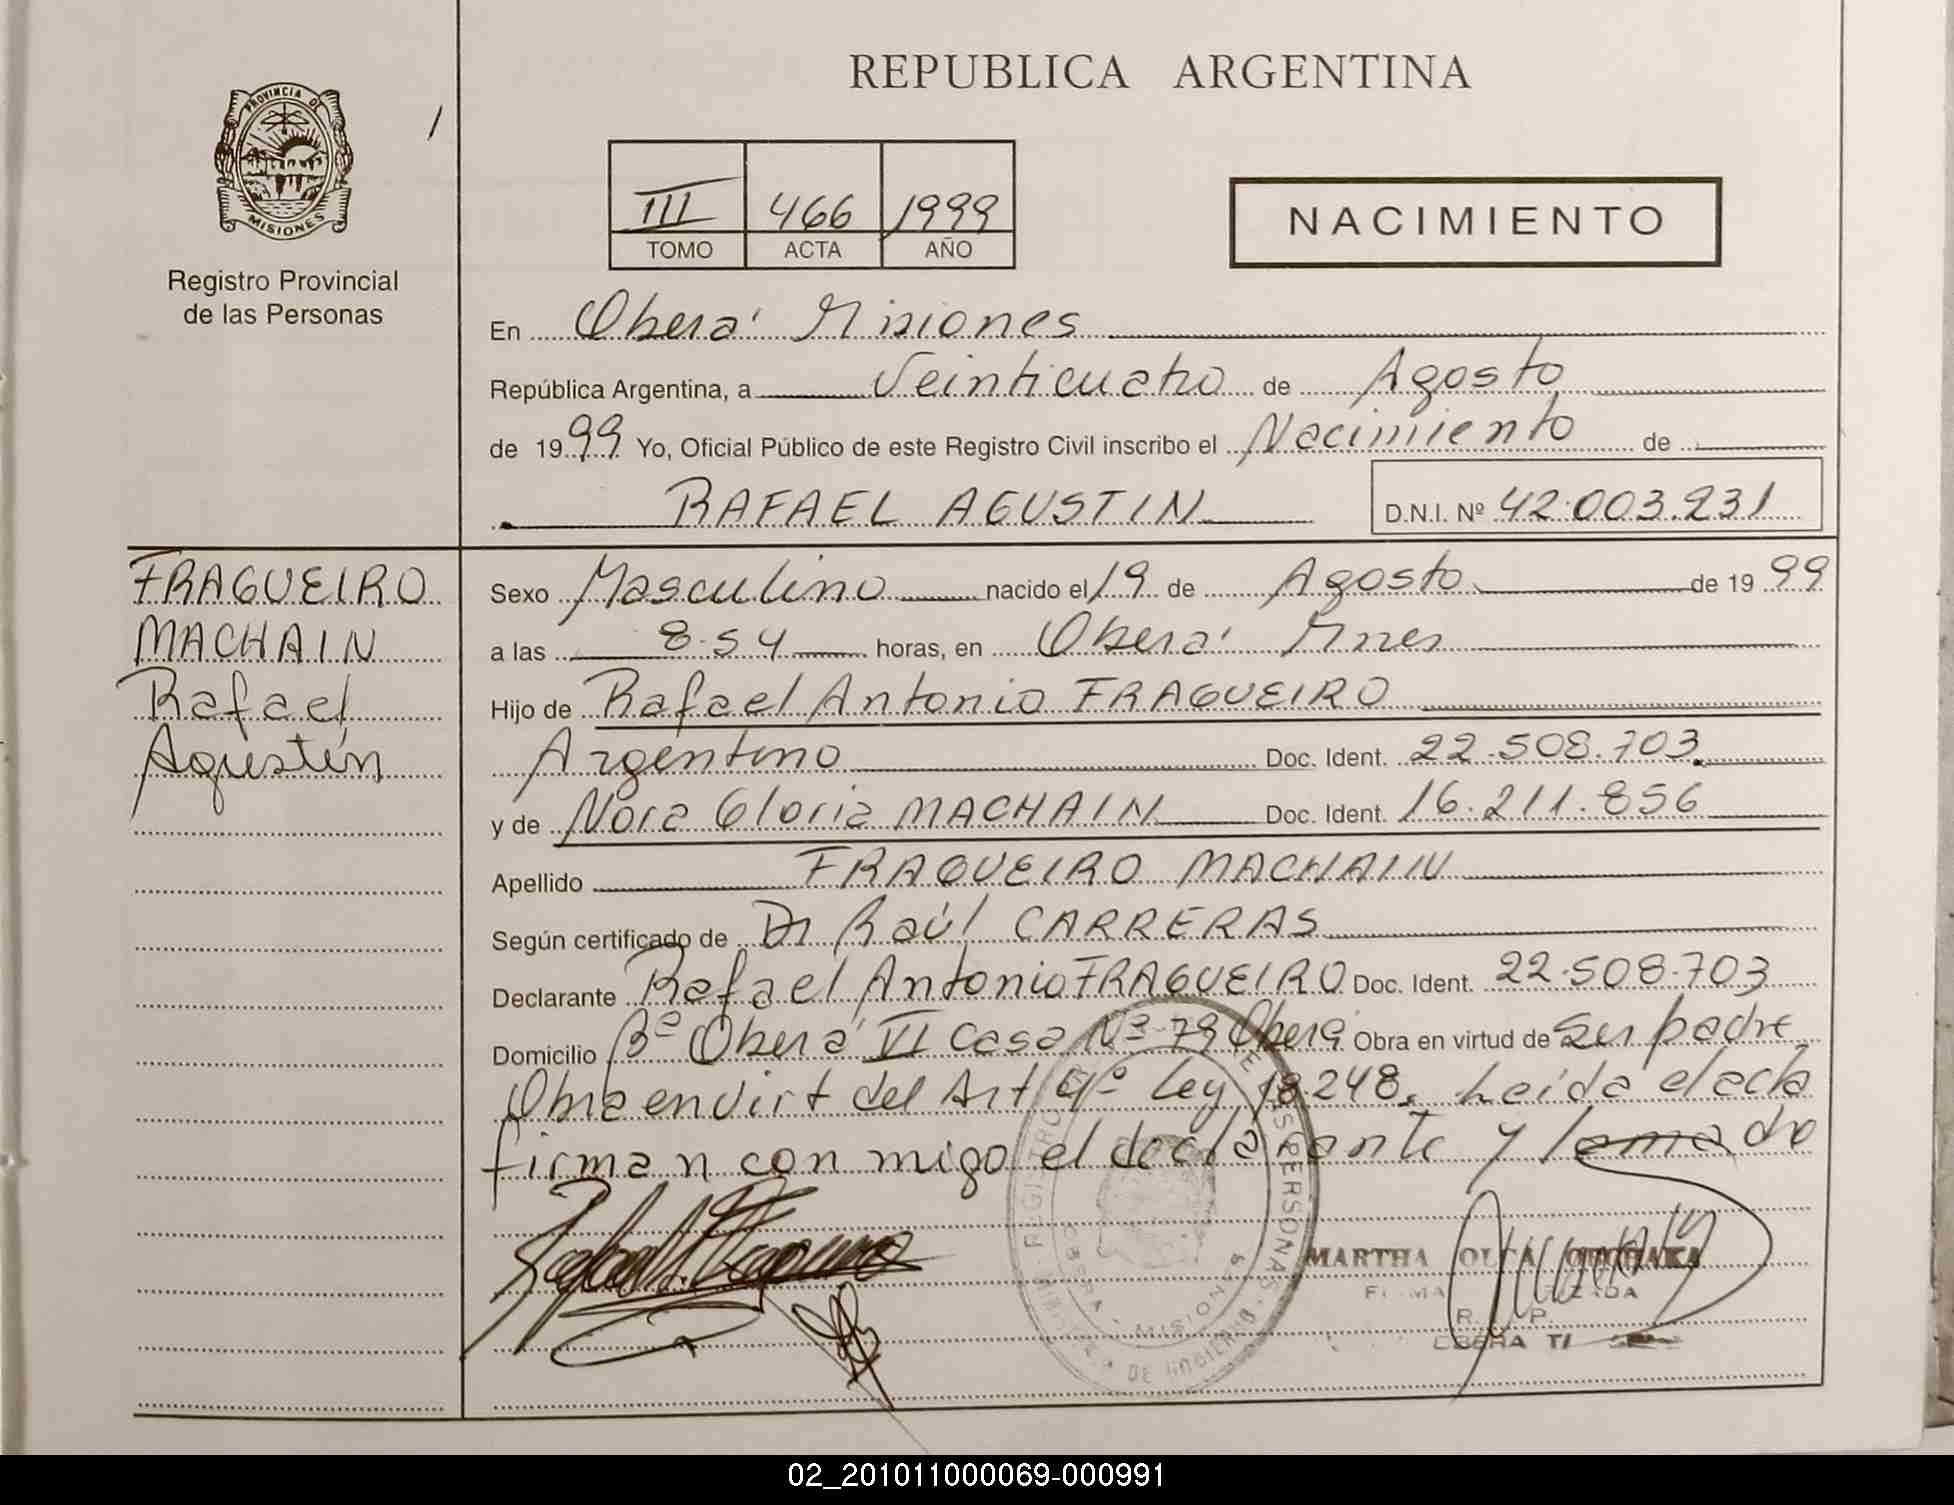 REPUBLICA ARGENTINA
PROVINCIA DE
MISIONES
Registro Provincial
de las Personas
III 466 1999
TOMO ACTA AÑO
NACIMIENTO
En Oberá Misiones
República Argentina, a Veinticuatro de Agosto
de 1999 Yo, Oficial Público de este Registro Civil inscribo el Nacimiento de
RAFAEL AGUSTIN D.N.I. Nº 42.003.231
FRAGUEIRO
MACHAIN
Rafael
Agustín
Sexo Masculino nacido el 19 de Agosto de 1999
a las 8.54 horas, en Oberá Mnes
Hijo de Rafael Antonio FRAGUEIRO
Argentino Doc. Ident. 22.508.703
y de Nora Gloria MACHAIN Doc. Ident. 16.211.856
Apellido FRAGUEIRO MACHAIN
Según certificado de Dr Raúl CARRERAS
Declarante Rafael Antonio FRAGUEIRO Doc. Ident. 22.508.703
Domicilio Bº Oberá VI Casa Nº 79 Oberá Obra en virtud de Ser padre
Obra en virt del Art 4º Ley 18.248. Leída el acta
firman con migo el declarante y
REGISTRO DE LAS PERSONAS
OBERA - MISIONES
MINISTERIO DE GOBIERNO
MARTHA OLGA
R. P.
OBERA
02_201011000069-000991